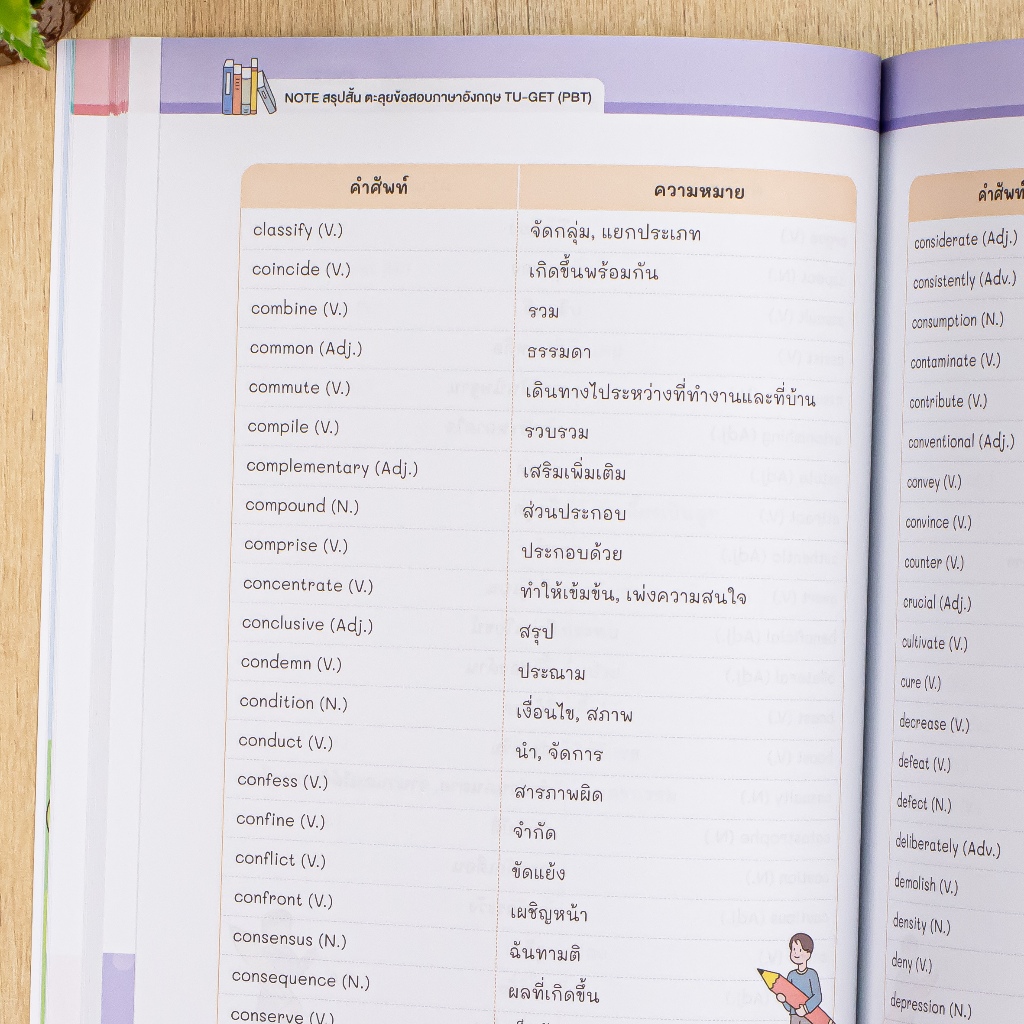 NOTE สรุปสั้น ตะลุยข้อสอบภาษาอังกฤษ TU-GET (PBT)
คำศัพท์ ความหมาย
classify (V.) จัดกลุ่ม, แยกประเภท
coincide (V.) เกิดขึ้นพร้อมกัน
combine (V.) รวม
common (Adj.) ธรรมดา
commute (V.) เดินทางไประหว่างที่ทำงานและที่บ้าน
compile (V.) รวบรวม
complementary (Adj.) เสริมเพิ่มเติม
compound (N.) ส่วนประกอบ
comprise (V.) ประกอบด้วย
concentrate (V.) ทำให้เข้มข้น, เพ่งความสนใจ
conclusive (Adj.) สรุป
condemn (V.) ประณาม
condition (N.) เงื่อนไข, สภาพ
conduct (V.) นำ, จัดการ
confess (V.) สารภาพผิด
confine (V.) จำกัด
conflict (V.) ขัดแย้ง
confront (V.) เผชิญหน้า
consensus (N.) ฉันทามติ
consequence (N.) ผลที่เกิดขึ้น
conserve (V.)
คำศัพท์
considerate (Adj.)
consistently (Adv.)
consumption (N.)
contaminate (V.)
contribute (V.)
conventional (Adj.)
convey (V.)
convince (V.)
counter (V.)
crucial (Adj.)
cultivate (V.)
cure (V.)
decrease (V.)
defeat (V.)
defect (N.)
deliberately (Adv.)
demolish (V.)
density (N.)
deny (V.)
depression (N.)